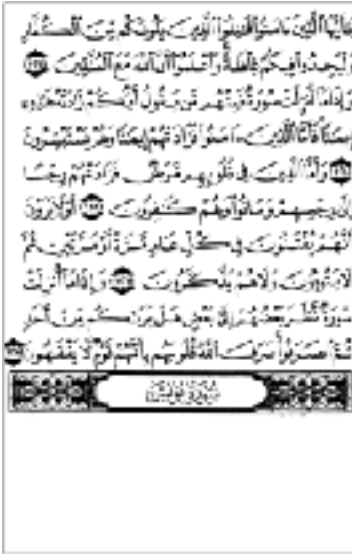 يَٰٓأَيُّهَا ٱلَّذِينَ ءَامَنُوا۟ قَٰتِلُوا۟ ٱلَّذِينَ يَلُونَكُم مِّنَ ٱلْكُفَّارِ
وَلْيَجِدُوا۟ فِيكُمْ غِلْظَةً وَٱعْلَمُوٓا۟ أَنَّ ٱللَّهَ مَعَ ٱلْمُتَّقِينَ
وَإِذَا مَآ أُنزِلَتْ سُورَةٌ فَمِنْهُم مَّن يَقُولُ أَيُّكُمْ زَادَتْهُ هَٰذِهِۦٓ
إِيمَٰنًا فَأَمَّا ٱلَّذِينَ ءَامَنُوا۟ فَزَادَتْهُمْ إِيمَٰنًا وَهُمْ يَسْتَبْشِرُونَ
وَأَمَّا ٱلَّذِينَ فِى قُلُوبِهِم مَّرَضٌ فَزَادَتْهُمْ رِجْسًا
إِلَىٰ رِجْسِهِمْ وَمَاتُوا۟ وَهُمْ كَٰفِرُونَ أَوَلَا يَرَوْنَ
أَنَّهُمْ يُفْتَنُونَ فِى كُلِّ عَامٍ مَّرَّةً أَوْ مَرَّتَيْنِ ثُمَّ
لَا يَتُوبُونَ وَلَا هُمْ يَذَّكَّرُونَ وَإِذَا مَآ أُنزِلَتْ
سُورَةٌ نَّظَرَ بَعْضُهُمْ إِلَىٰ بَعْضٍ هَلْ يَرَىٰكُم مِّنْ أَحَدٍ
ثُمَّ ٱنصَرَفُوا۟ صَرَفَ ٱللَّهُ قُلُوبَهُم بِأَنَّهُمْ قَوْمٌ لَّا يَفْقَهُونَ